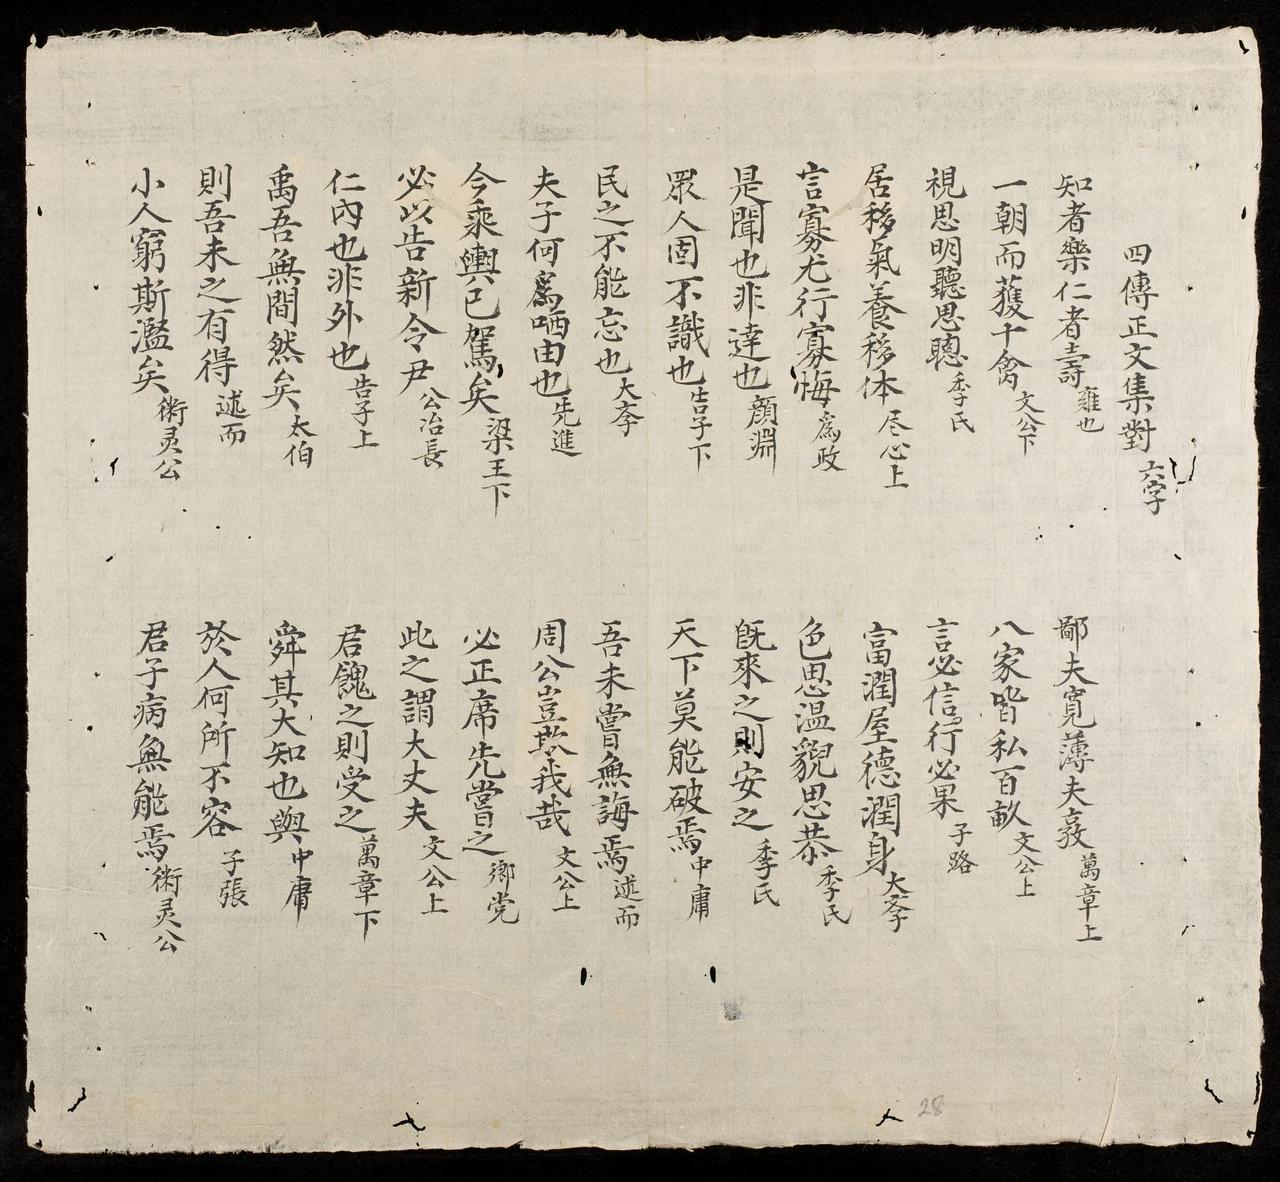 四傳正文集對 六字
知者樂仁者壽 雍也
鄙夫寬薄夫敦 萬章上
一朝而獲十禽 文公下
八家皆私百畝 文公上
視思明聽思聰 季氏
言必信行必果 子路
居移氣養移体 尽心上
富潤屋德潤身 大斈
言寡尤行寡悔 為政
色思温貌思恭 季氏
是聞也非達也 顏淵
既來之則安之 季氏
眾人固不識也 告子下
天下莫能破焉 中庸
民之不能忘也 大斈
吾未嘗無誨焉 述而
夫子何為哂由也 先進
周公豈欺我哉 文公上
今乘輿已駕矣 梁王下
必正席先嘗之 鄉党
必以告新令尹 公冶長
此之謂大丈夫 文公上
仁內也非外也 告子上
君餽之則受之 萬章下
禹吾無間然矣 太伯
舜其大知也與 中庸
則吾未之有得 述而
於人何所不容 子張
小人窮斯濫矣 術灵公
君子病無能焉 術灵公
28